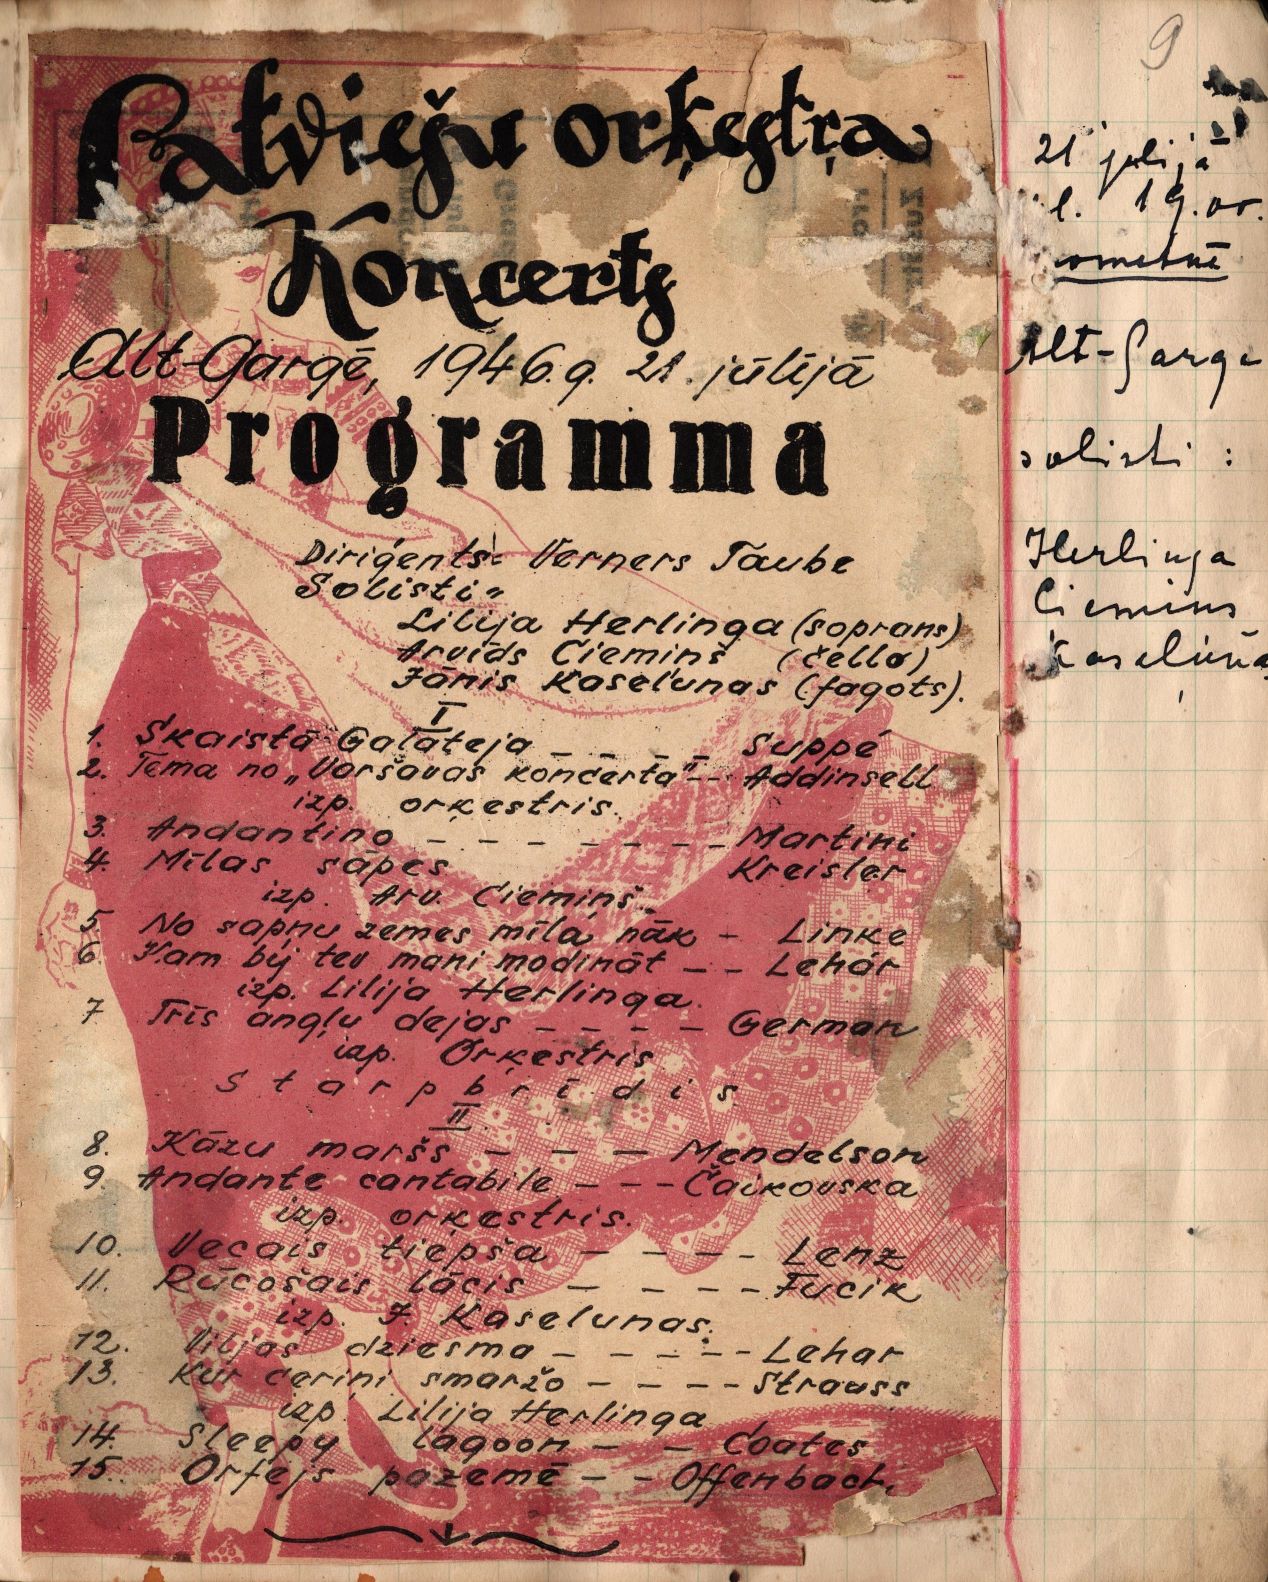 Latviešu orķestra
Koncerts
Alt-Gargē, 1946.g. 21. jūlijā
Programma
Diriģents: Verners Taube
Solisti:
Lilija Herlinga (soprans)
Arvīds Ciemiņš (čello)
Jānis Kaselunas (fagots).
I
1. Skaistā Galateja _ _ _ _ Suppé
2. Tēma no „Varšavas koncerta" -- Addinsell
izp. orķestris.
3. Andantino _ _ _ _ _ _ _ Martini
4. Mīlas sāpes Kreisler
izp. Arv. Ciemiņš.
5. No sapņu zemes mīla nāk - Linke
6. Kam bij tev mani modināt -- Lehár
izp. Lilija Herlinga.
7 Trīs angļu dejas - - - - German
izp. Orķestris
Starpbrīdis
II
8. Kāzu maršs - - - Mendelson
9. Andante cantabile - - - Čaikovska
izp. orķestris.
10. Vecais tiepša - - - - Lenz
11. Rūcošais lācis - - - - Fucik
izp. J. Kaselunas.
12. Viljas dziesma - - - - - Lehar
13. Kur ceriņi smaržo - - - - Strauss
izp. Lilija Herlinga
14. Sleepy lagoon - - Coates
15. Orfejs pazemē - - Offenbach.
9
21 jūlijā
l. 19.00.
Alt-Garge
solisti :
Herlinga
Ciemiņš
Kaselūnas